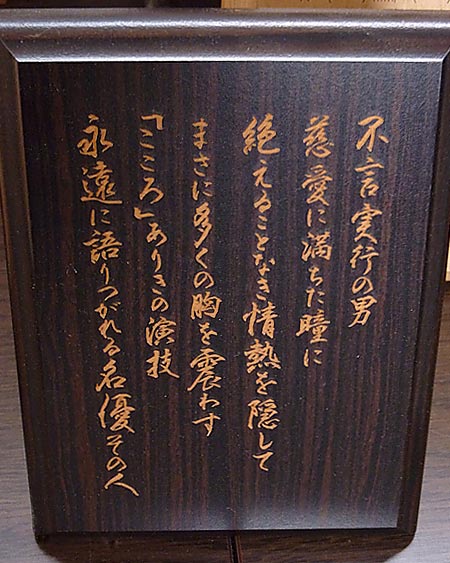 不言実行の男
慈愛に満ちた瞳に
絶えることなき情熱を隠して
まさに多くの胸を震わす
「こころ」ありきの演技
永遠に語りつがれる名優その人